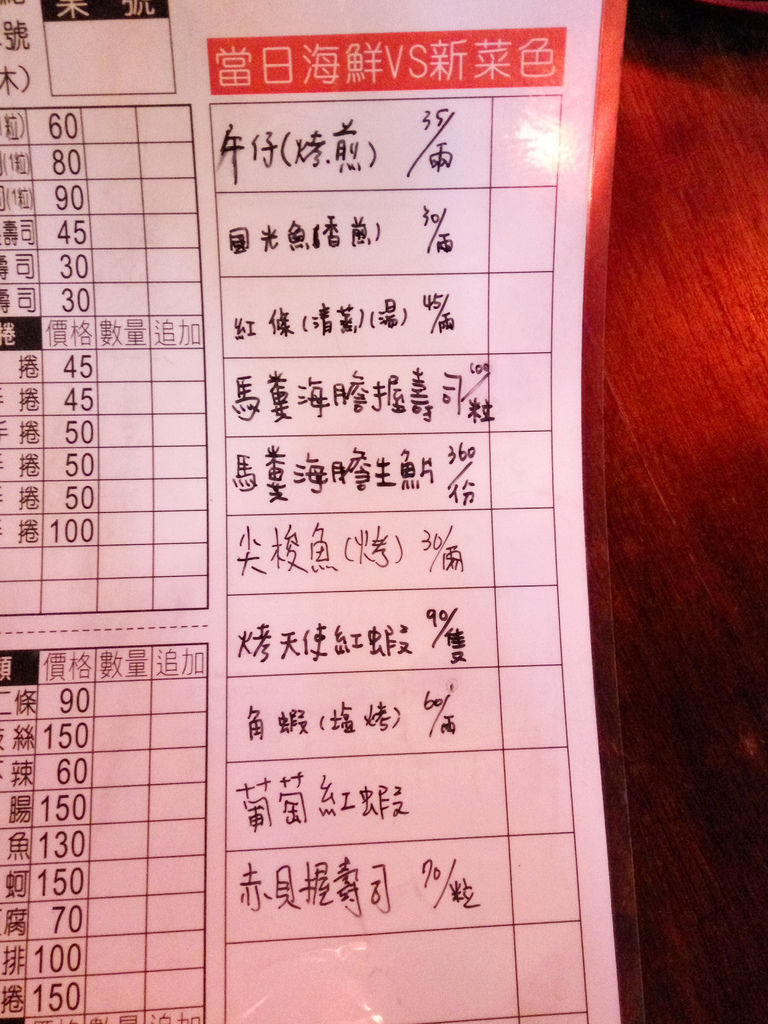 業號
號
木)
1粒) 60
(1粒) 80
司(1粒) 90
壽司 45
壽司 30
壽司 30
捲 價格 數量 追加
捲 45
手捲 45
手捲 50
手捲 50
手捲 50
手捲 100
類 價格 數量 追加
二條 90
絲 150
辣 60
腸 150
魚 130
蚵 150
腐 70
排 100
捲 150
價格 數量 追加
當日海鮮VS新菜色
午仔(烤.煎) 35/兩
國光魚(香煎) 30/兩
紅條(清蒸)(湯) 45/兩
馬糞海膽握壽司 100/粒
馬糞海膽生魚片 360/份
尖梭魚(烤) 30/兩
烤天使紅蝦 90/隻
角蝦(塩烤) 60/兩
葡萄紅蝦
赤貝握壽司 70/粒